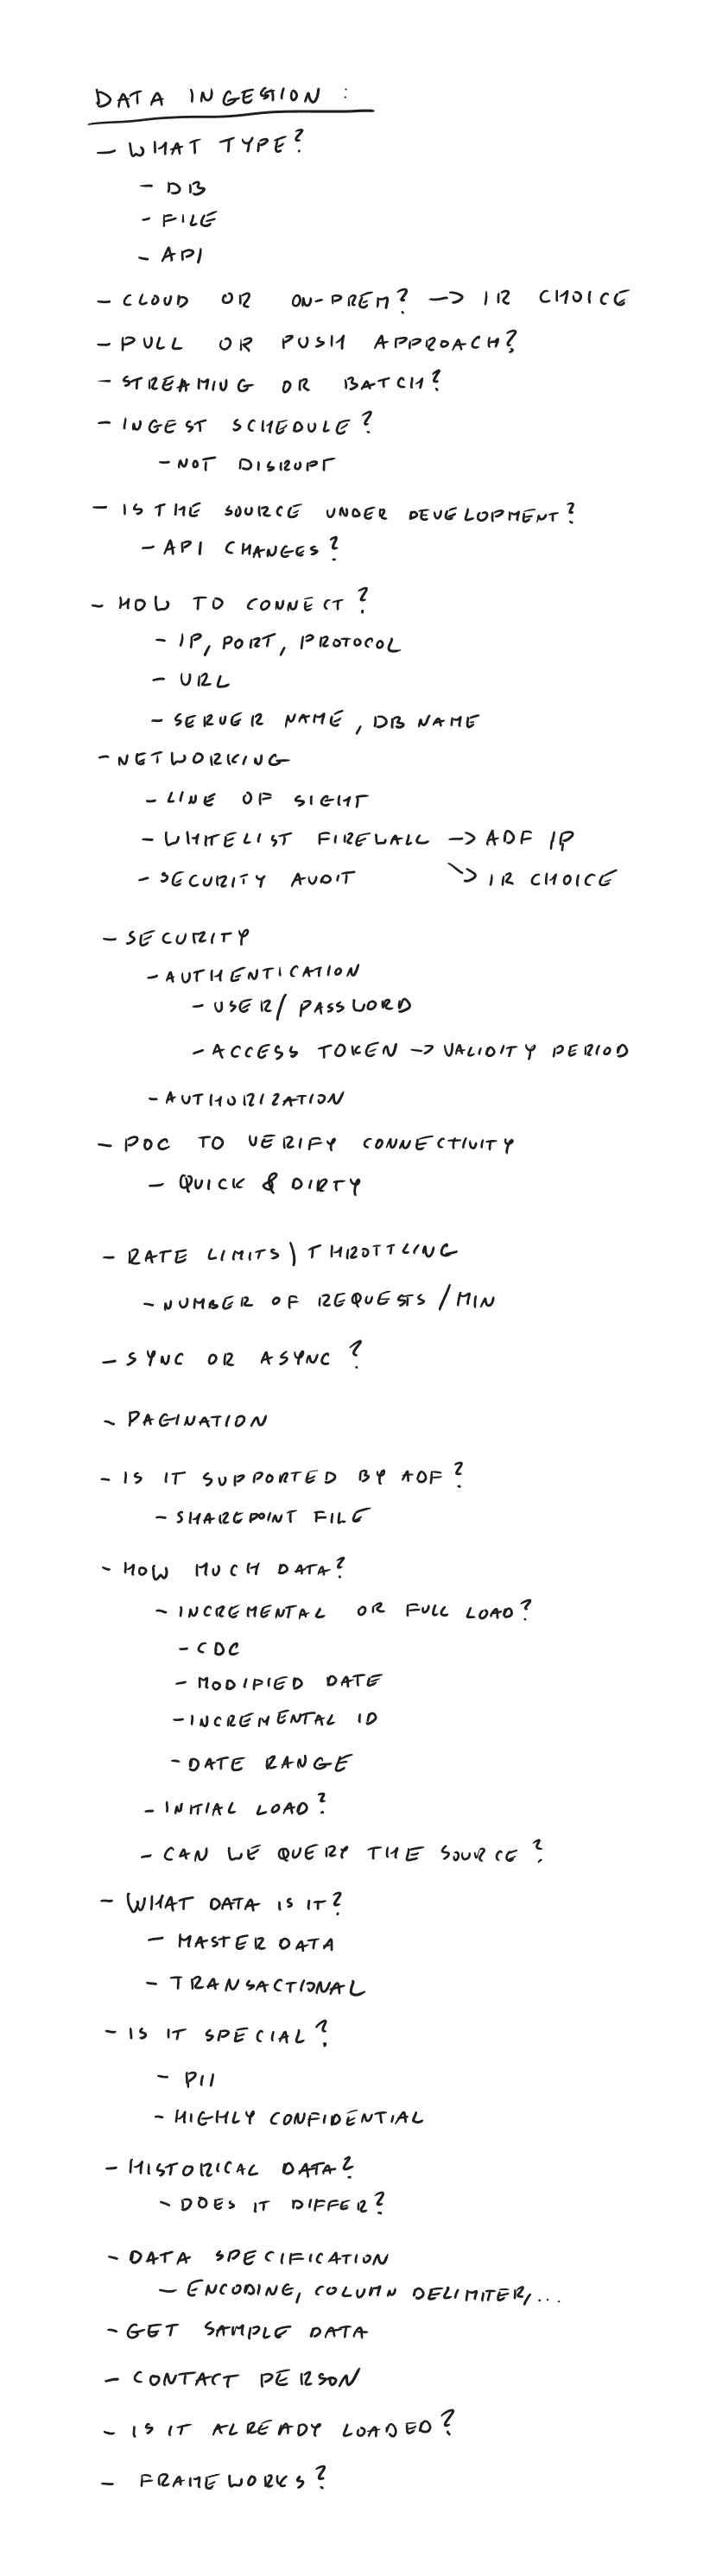 DATA INGESTION :
- WHAT TYPE?
- DB
- FILE
- API
- CLOUD OR ON-PREM? -> IR CHOICE
- PULL OR PUSH APPROACH?
- STREAMING OR BATCH?
- INGEST SCHEDULE?
- NOT DISRUPT
- IS THE SOURCE UNDER DEVELOPMENT?
- API CHANGES?
- HOW TO CONNECT?
- IP, PORT, PROTOCOL
- URL
- SERVER NAME, DB NAME
- NETWORKING
- LINE OF SIGHT
- WHITELIST FIREWALL -> ADF IP
- SECURITY AUDIT -> IR CHOICE
- SECURITY
- AUTHENTICATION
- USER/ PASSWORD
- ACCESS TOKEN -> VALIDITY PERIOD
- AUTHORIZATION
- POC TO VERIFY CONNECTIVITY
- QUICK & DIRTY
- RATE LIMITS \ THROTTLING
- NUMBER OF REQUESTS / MIN
- SYNC OR ASYNC ?
- PAGINATION
- IS IT SUPPORTED BY ADF?
- SHAREPOINT FILE
- HOW MUCH DATA?
- INCREMENTAL OR FULL LOAD?
- CDC
- MODIFIED DATE
- INCREMENTAL ID
- DATE RANGE
- INITIAL LOAD?
- CAN WE QUERY THE SOURCE ?
- WHAT DATA IS IT?
- MASTER DATA
- TRANSACTIONAL
- IS IT SPECIAL?
- PII
- HIGHLY CONFIDENTIAL
- HISTORICAL DATA?
- DOES IT DIFFER?
- DATA SPECIFICATION
- ENCODING, COLUMN DELIMITER, ...
- GET SAMPLE DATA
- CONTACT PERSON
- IS IT ALREADY LOADED?
- FRAMEWORKS?